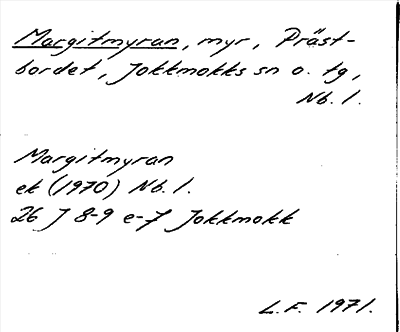 Margitmyran, myr, Präst-
bordet, Jokkmokks sn o. tg,
Nb. l.
Margitmyran
ek (1970) Nb. l.
26 J 8-9 e-f Jokkmokk
L.F. 1971.